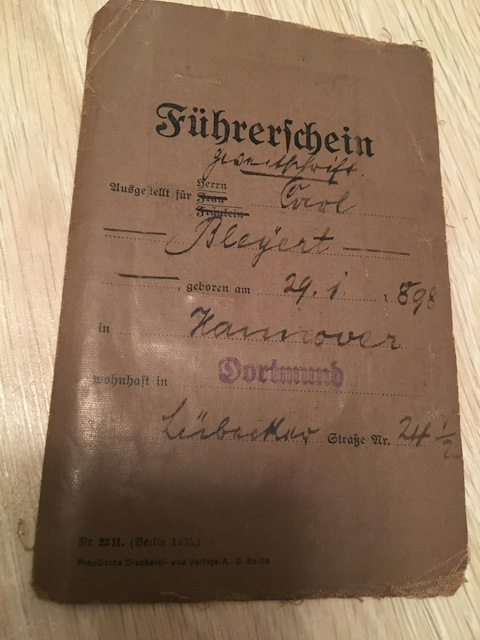 Führerschein
Zweitschrift.
Ausgestellt für Herrn Carl
Frau
Fräulein
Bleyert
, geboren am 29. 1 1898
in Hannover
wohnhaft in Dortmund
Lübecker Straße Nr. 24 1/2
Nr. 2311. (Berlin 1935.)
Preußische Druckerei- und Verlags-A.-G. Berlin